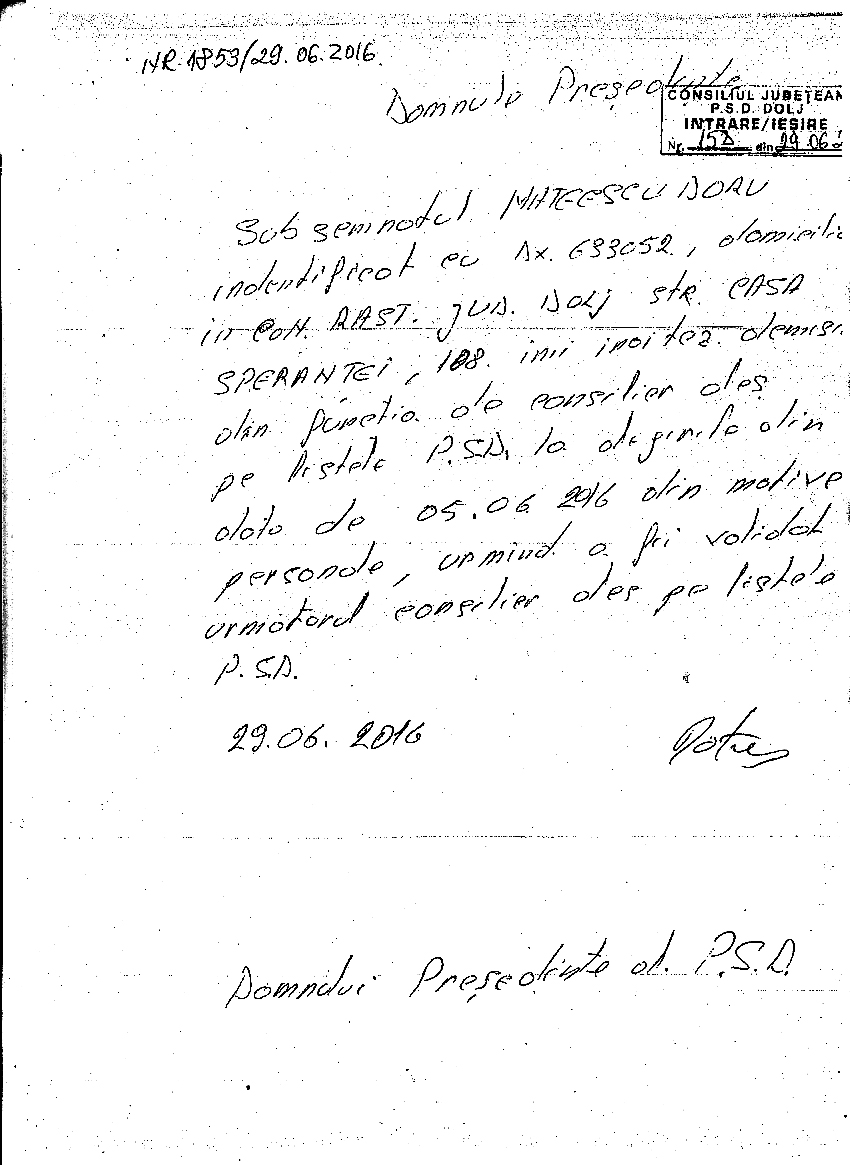 NR. 1853/29.06.2016
Domnule Președinte
CONSILIUL JUDEȚEAN
P.S.D. DOLJ
INTRARE/IESIRE
Nr. 152 din 29 06
Subsemnatul MATEESCU DORU
indentificat cu DX. 633052, domicilia
in COM. RAST. JUD. DOLJ str. CASA
SPERANTEI, 188. imi inaitez demisi
din functia de consilier ales
pe listele P.S.D. la alegerile din
data de 05.06 2016 din motive
personale, urmind a fi validat
urmatorul consilier ales pe listele
P.S.D.
29.06. 2016
Domnului Președinte al P.S.D.